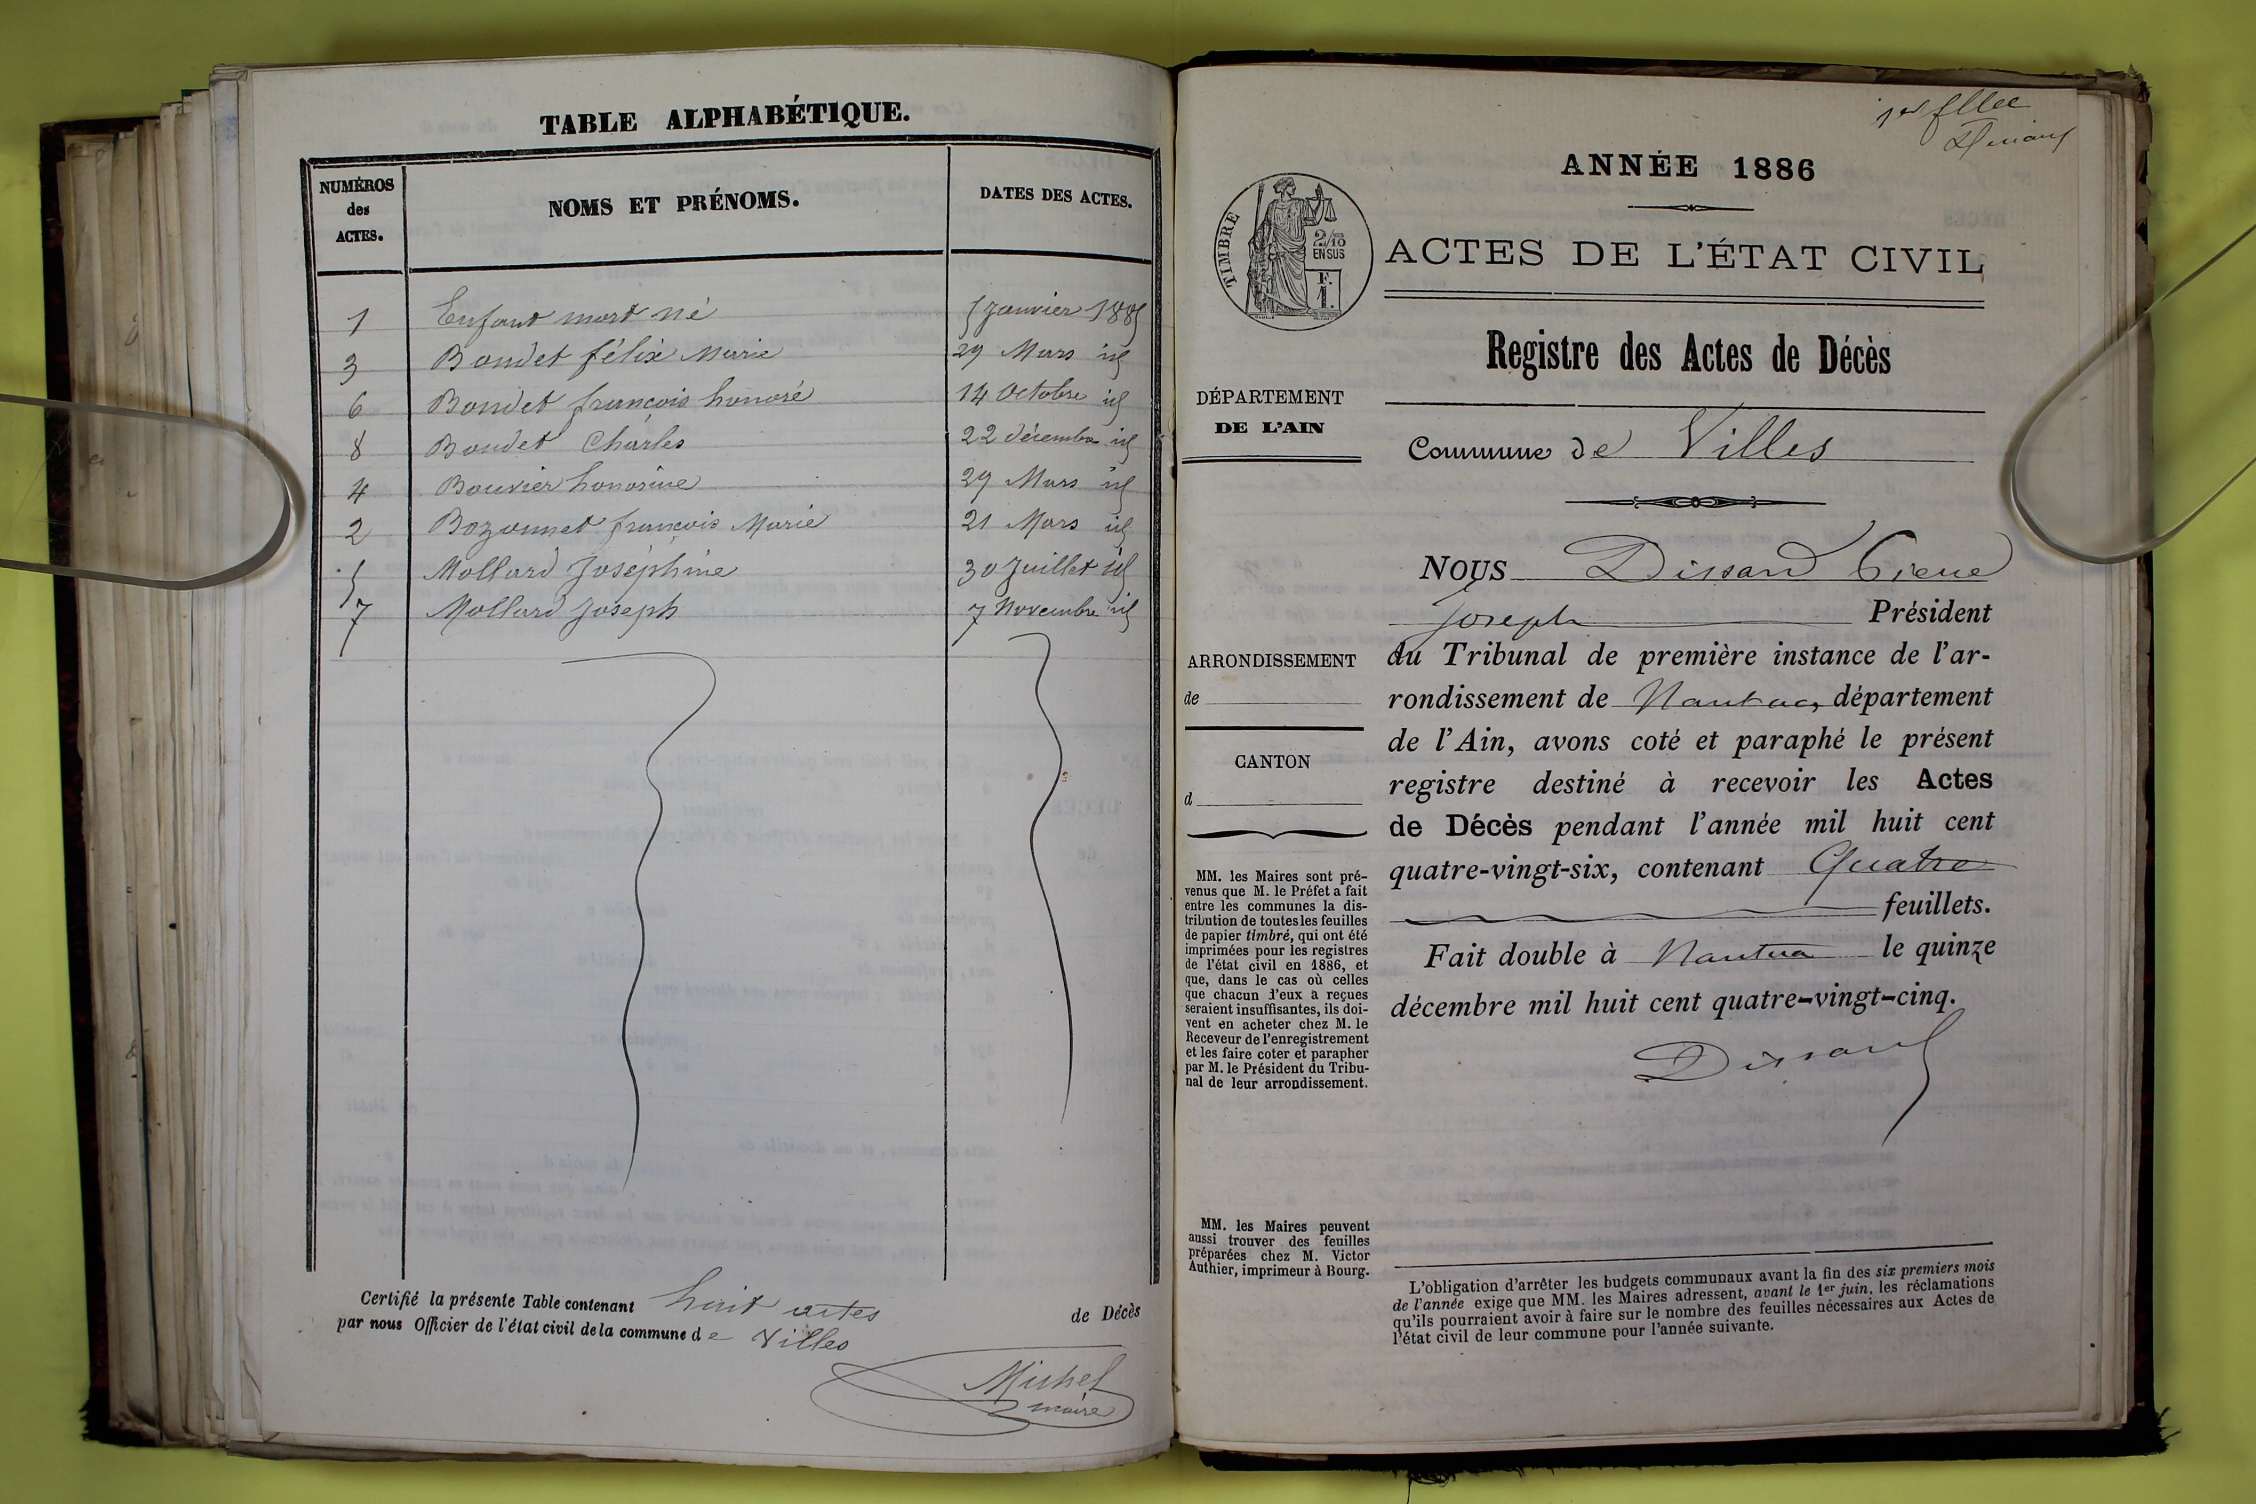 TABLE ALPHABÉTIQUE.
NUMÉROS
des
ACTES.
NOMS ET PRÉNOMS.
DATES DES ACTES.
1 Enfant mort né 5 Janvier 1885
3 Boudet félix Marie 29 Mars id
6 Boudet françois honoré 14 Octobre id
8 Boudet Charles 22 décembre id
4 Bouvier honorine 29 Mars id
2 Bozonnet françois Marie 21 Mars id
5 Mollard Joséphine 30 Juillet id
7 Mollard Joseph 7 Novembre id
Certifié la présente Table contenant huit actes de Décès
par nous Officier de l'état civil de la commune de Villes
Michel
maire
1er fllet
ANNÉE 1886
TIMBRE
2/10
EN SUS
F.
1.
ACTES DE L'ÉTAT CIVIL
Registre des Actes de Décès
DÉPARTEMENT
DE L'AIN
Commune de Villes
NOUS Dissard Pierre
Joseph Président
du Tribunal de première instance de l'ar-
rondissement de Nantua, département
de l'Ain, avons coté et paraphé le présent
registre destiné à recevoir les Actes
de Décès pendant l'année mil huit cent
quatre-vingt-six, contenant Quatre
feuillets.
Fait double à Nantua le quinze
décembre mil huit cent quatre-vingt-cinq.
Dissard
ARRONDISSEMENT
de
CANTON
d
MM. les Maires sont pré-
venus que M. le Préfet a fait
entre les communes la dis-
tribution de toutes les feuilles
de papier timbré, qui ont été
imprimées pour les registres
de l'état civil en 1886, et
que, dans le cas où celles
que chacun d'eux a reçues
seraient insuffisantes, ils doi-
vent en acheter chez M. le
Receveur de l'enregistrement
et les faire coter et parapher
par M. le Président du Tribu-
nal de leur arrondissement.
MM. les Maires peuvent
aussi trouver des feuilles
préparées chez M. Victor
Authier, imprimeur à Bourg.
L'obligation d'arrêter les budgets communaux avant la fin des six premiers mois
de l'année exige que MM. les Maires adressent, avant le 1er juin, les réclamations
qu'ils pourraient avoir à faire sur le nombre des feuilles nécessaires aux Actes de
l'état civil de leur commune pour l'année suivante.